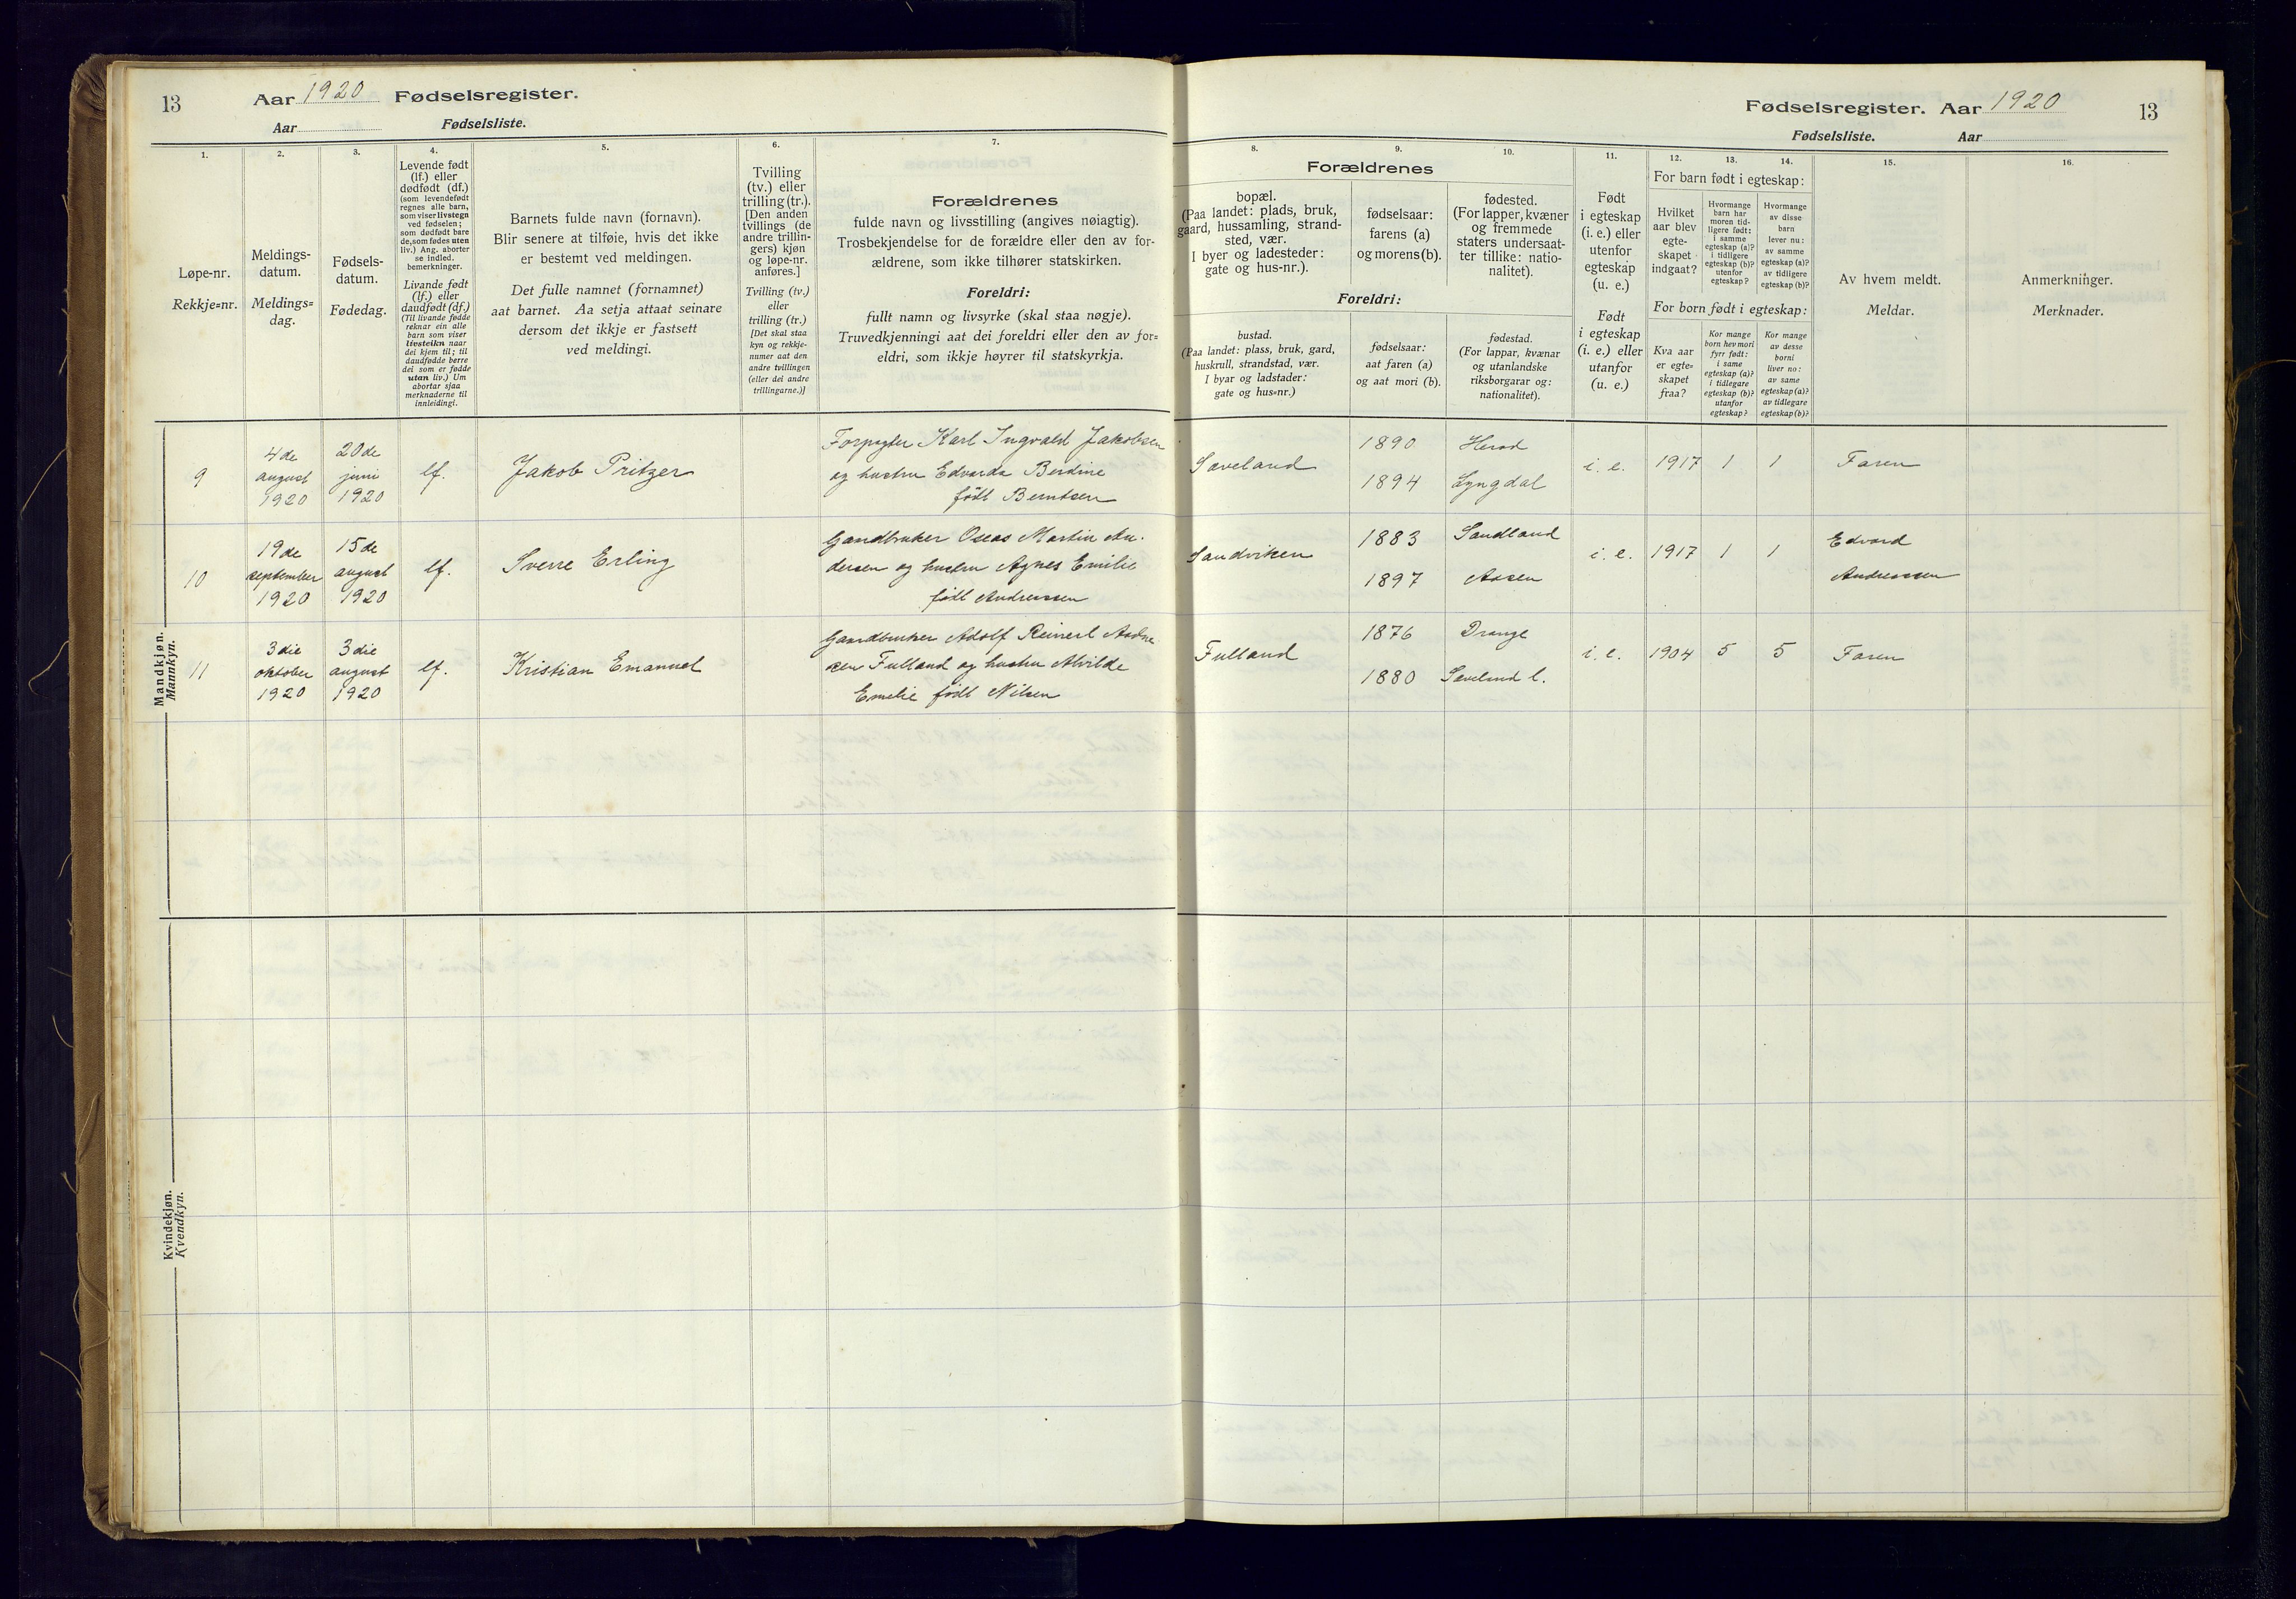 13
Aar 1920 Fødselsregister.
Aar Fødselsliste.
Fødselsregister. Aar 1920
13
Fødselsliste. Aar
1.
2.
3.
4.
5.
6.
7.
8.
9.
10.
11.
12.
13.
14.
15.
16.
Løpe-nr.
Rekkje=nr.
Meldings-
datum.
Meldings=
dag.
Fødsels-
datum.
Fødedag.
Levende født
(lf.) eller
dødfødt (df.)
(som levendefødt
regnes alle barn,
som viser livstegn
ved fødselen;
som dødfødt bare
de, som fødes uten
liv.) Ang. aborter
se indled.
bemerkninger.
Livande født
(lf.) eller
daudfødt (df.)
(Til livande fødde
reknar ein alle
barn som viser
livsteikn naar
dei kjem til; til
daudfødde berre
dei som er fødde
utan liv.) Um
abortar sjaa
merknaderne til
innleidingi.
Barnets fulde navn (fornavn).
Blir senere at tilføie, hvis det ikke
er bestemt ved meldingen.
Det fulle namnet (fornamnet)
aat barnet. Aa setja attaat seinare
dersom det ikkje er fastsett
ved meldingi.
Tvilling
(tv.) eller
trilling (tr.).
[Den anden
tvillings (de
andre trillin-
gers) kjøn
og løpe-nr.
anføres.]
Tvilling (tv.)
eller
trilling (tr.)
[Det skal staa
kyn og rekkje-
numer aat den
andre tvillingen
(eller dei andre
trillingarne.)]
Forældrenes
fulde navn og livsstilling (angives nøiagtig).
Trosbekjendelse for de forældre eller den av for-
ældrene, som ikke tilhører statskirken.
Foreldri:
fullt namn og livsyrke (skal staa nøgje).
Truvedkjenningi aat dei foreldri eller den av for=
eldri, som ikkje høyrer til statskyrkja.
Forældrenes
bopæl.
(Paa landet: plads, bruk,
gaard, hussamling, strand-
sted, vær.
I byer og ladesteder:
gate og hus-nr.).
fødselsaar:
farens (a)
og morens (b).
fødested.
(For lapper, kvæner
og fremmede
staters undersaat-
ter tillike: natio-
nalitet).
Foreldri:
bustad.
(Paa landet: plass, bruk, gard,
huskrull, strandstad, vær.
I byar og ladstader:
gate og hus=nr.)
fødselsaar:
aat faren (a)
og aat mori (b).
fødestad.
(For lappar, kvænar
og utanlandske
riksborgarar og:
nationalitet).
Født
i egteskap
(i. e.) eller
utenfor
egteskap
(u. e.)
Født
i egteskap
(i. e.) eller
utanfor
(u. e.)
For barn født i egteskap:
Hvilket
aar blev
egte-
skapet
indgaat?
Hvormange
barn har
moren tid-
ligere født:
i samme
egteskap (a)?
i tidligere
egteskap (b)?
utenfor
egteskap?
Hvormange
av disse
barn
lever nu:
av samme
egteskap (a)?
av tidligere
egteskap (b)?
For born født i egteskap:
Kva aar
er egte=
skapet
fraa?
Kor mange
born hev mori
fyrr født:
i same
egteskap (a)?
i tidlegare
egteskap (b)?
utanfor
egteskap?
Kor mange
av desse
borni
liver no:
av same
egteskap (a)?
av tidlegare
egteskap (b)?
Av hvem meldt.
Meldar.
Anmerkninger.
Merknader.
Mandkjøn.
Mannkyn.
9
4de
august
1920
20de
juni
1920
lf.
Jakob Pritzer
Forpagter Karl Ingvald Jakobsen
og hustru Edvarda Berdine
født Berntsen
Saveland
1890
1894
Herad
Lyngdal
i. e.
1917
1
1
Faren
10
19de
september
1920
15de
august
1920
lf.
Sverre Erling
Gaardbruker Oseas Martin An-
dersen og hustru Agnes Emilie
født Andreassen
Sandviken
1883
1897
Sandland
Aasen
i. e.
1917
1
1
Edvard
Andreassen
11
3die
oktober
1920
3die
august
1920
lf.
Kristian Emanuel
Gaardbruker Adolf Reinert Aadne-
sen Fulland og hustru Alvilde
Emelie født Nilsen
Fulland
1876
1880
Drange
Saveland l.
i. e.
1904
5
5
Faren
Kvindekjøn.
Kvendkyn.